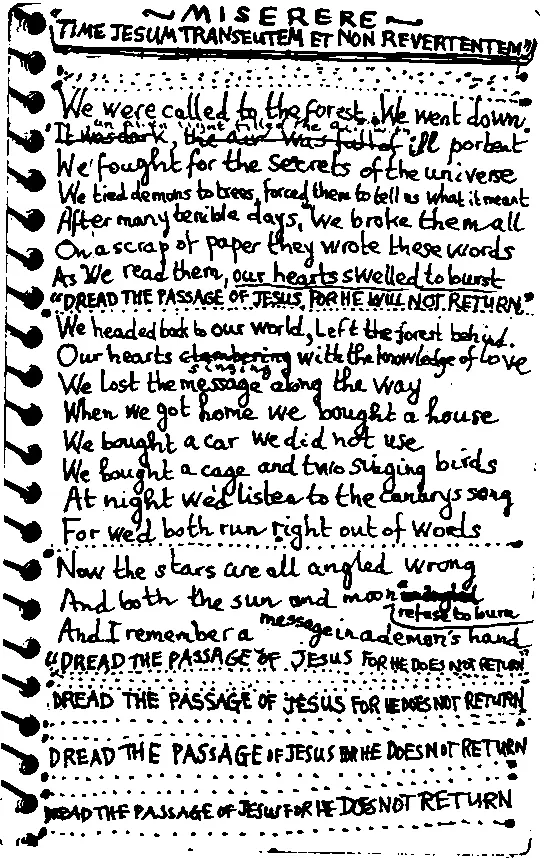 ~MISERERE~
"TIME JESUM TRANSEUTEM ET NON REVERTENTEM"
We were called to the forest. We went down
night filled the
It was dark, the air was full of ill portent
We fought for the secrets of the universe
We tied demons to trees, forced them to tell us what it meant
After many terrible days, We broke them all
On a scrap of paper they wrote these words
As We read them, our hearts swelled to burst
"DREAD THE PASSAGE OF JESUS, FOR HE WILL NOT RETURN"
We headed back to our world, Left the forest behind.
Our hearts clambering with the knowledge of love
singing
We lost the message along the way
When we got home we bought a house
We bought a car we did not use
We bought a cage and two singing birds
At night we'd listen to the canarys song
For we'd both run right out of words
Now the stars are all angled wrong
And both the sun and moon
refuse to burn
And I remember a message in a demon's hand
"DREAD THE PASSAGE OF JESUS FOR HE DOES NOT RETURN"
DREAD THE PASSAGE OF JESUS FOR HE DOES NOT RETURN
DREAD THE PASSAGE OF JESUS FOR HE DOES NOT RETURN
DREAD THE PASSAGE OF JESUS FOR HE DOES NOT RETURN